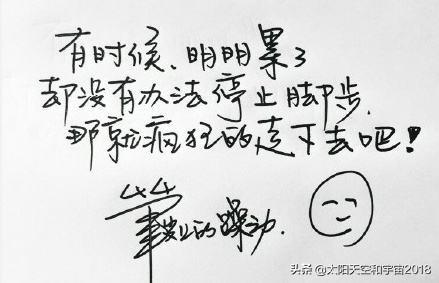 有时候、明明累了
却没有办法停止脚步.
那就疯狂的走下去吧!
的躁动.
头条 @太阳天空和宇宙2018